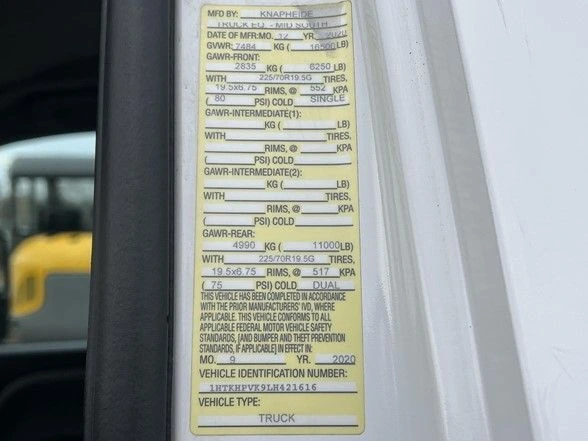 MFD BY: KNAPHEIDE
TRUCK EQ. - MID SOUTH
DATE OF MFR:MO. 12 YR. 2020
GVWR: 7484 KG ( 16500LB)
GAWR-FRONT:
2835 KG ( 6250 LB)
WITH 225/70R19.5G TIRES,
19.5x6.75 RIMS, @ 552 KPA
( 80 PSI) COLD SINGLE
GAWR-INTERMEDIATE(1):
KG ( LB)
WITH TIRES,
RIMS, @ KPA
( PSI) COLD
GAWR-INTERMEDIATE(2):
KG ( LB)
WITH TIRES,
RIMS, @ KPA
( PSI) COLD
GAWR-REAR:
4990 KG ( 11000LB)
WITH 225/70R19.5G TIRES,
19.5x6.75 RIMS, @ 517 KPA
( 75 PSI) COLD DUAL
THIS VEHICLE HAS BEEN COMPLETED IN ACCORDANCE
WITH THE PRIOR MANUFACTURERS' IVD, WHERE
APPLICABLE. THIS VEHICLE CONFORMS TO ALL
APPLICABLE FEDERAL MOTOR VEHICLE SAFETY
STANDARDS, [AND BUMPER AND THEFT PREVENTION
STANDARDS, IF APPLICABLE] IN EFFECT IN:
MO. 9 YR. 2020
VEHICLE IDENTIFICATION NUMBER:
1HTKHPVK9LH421616
VEHICLE TYPE:
TRUCK